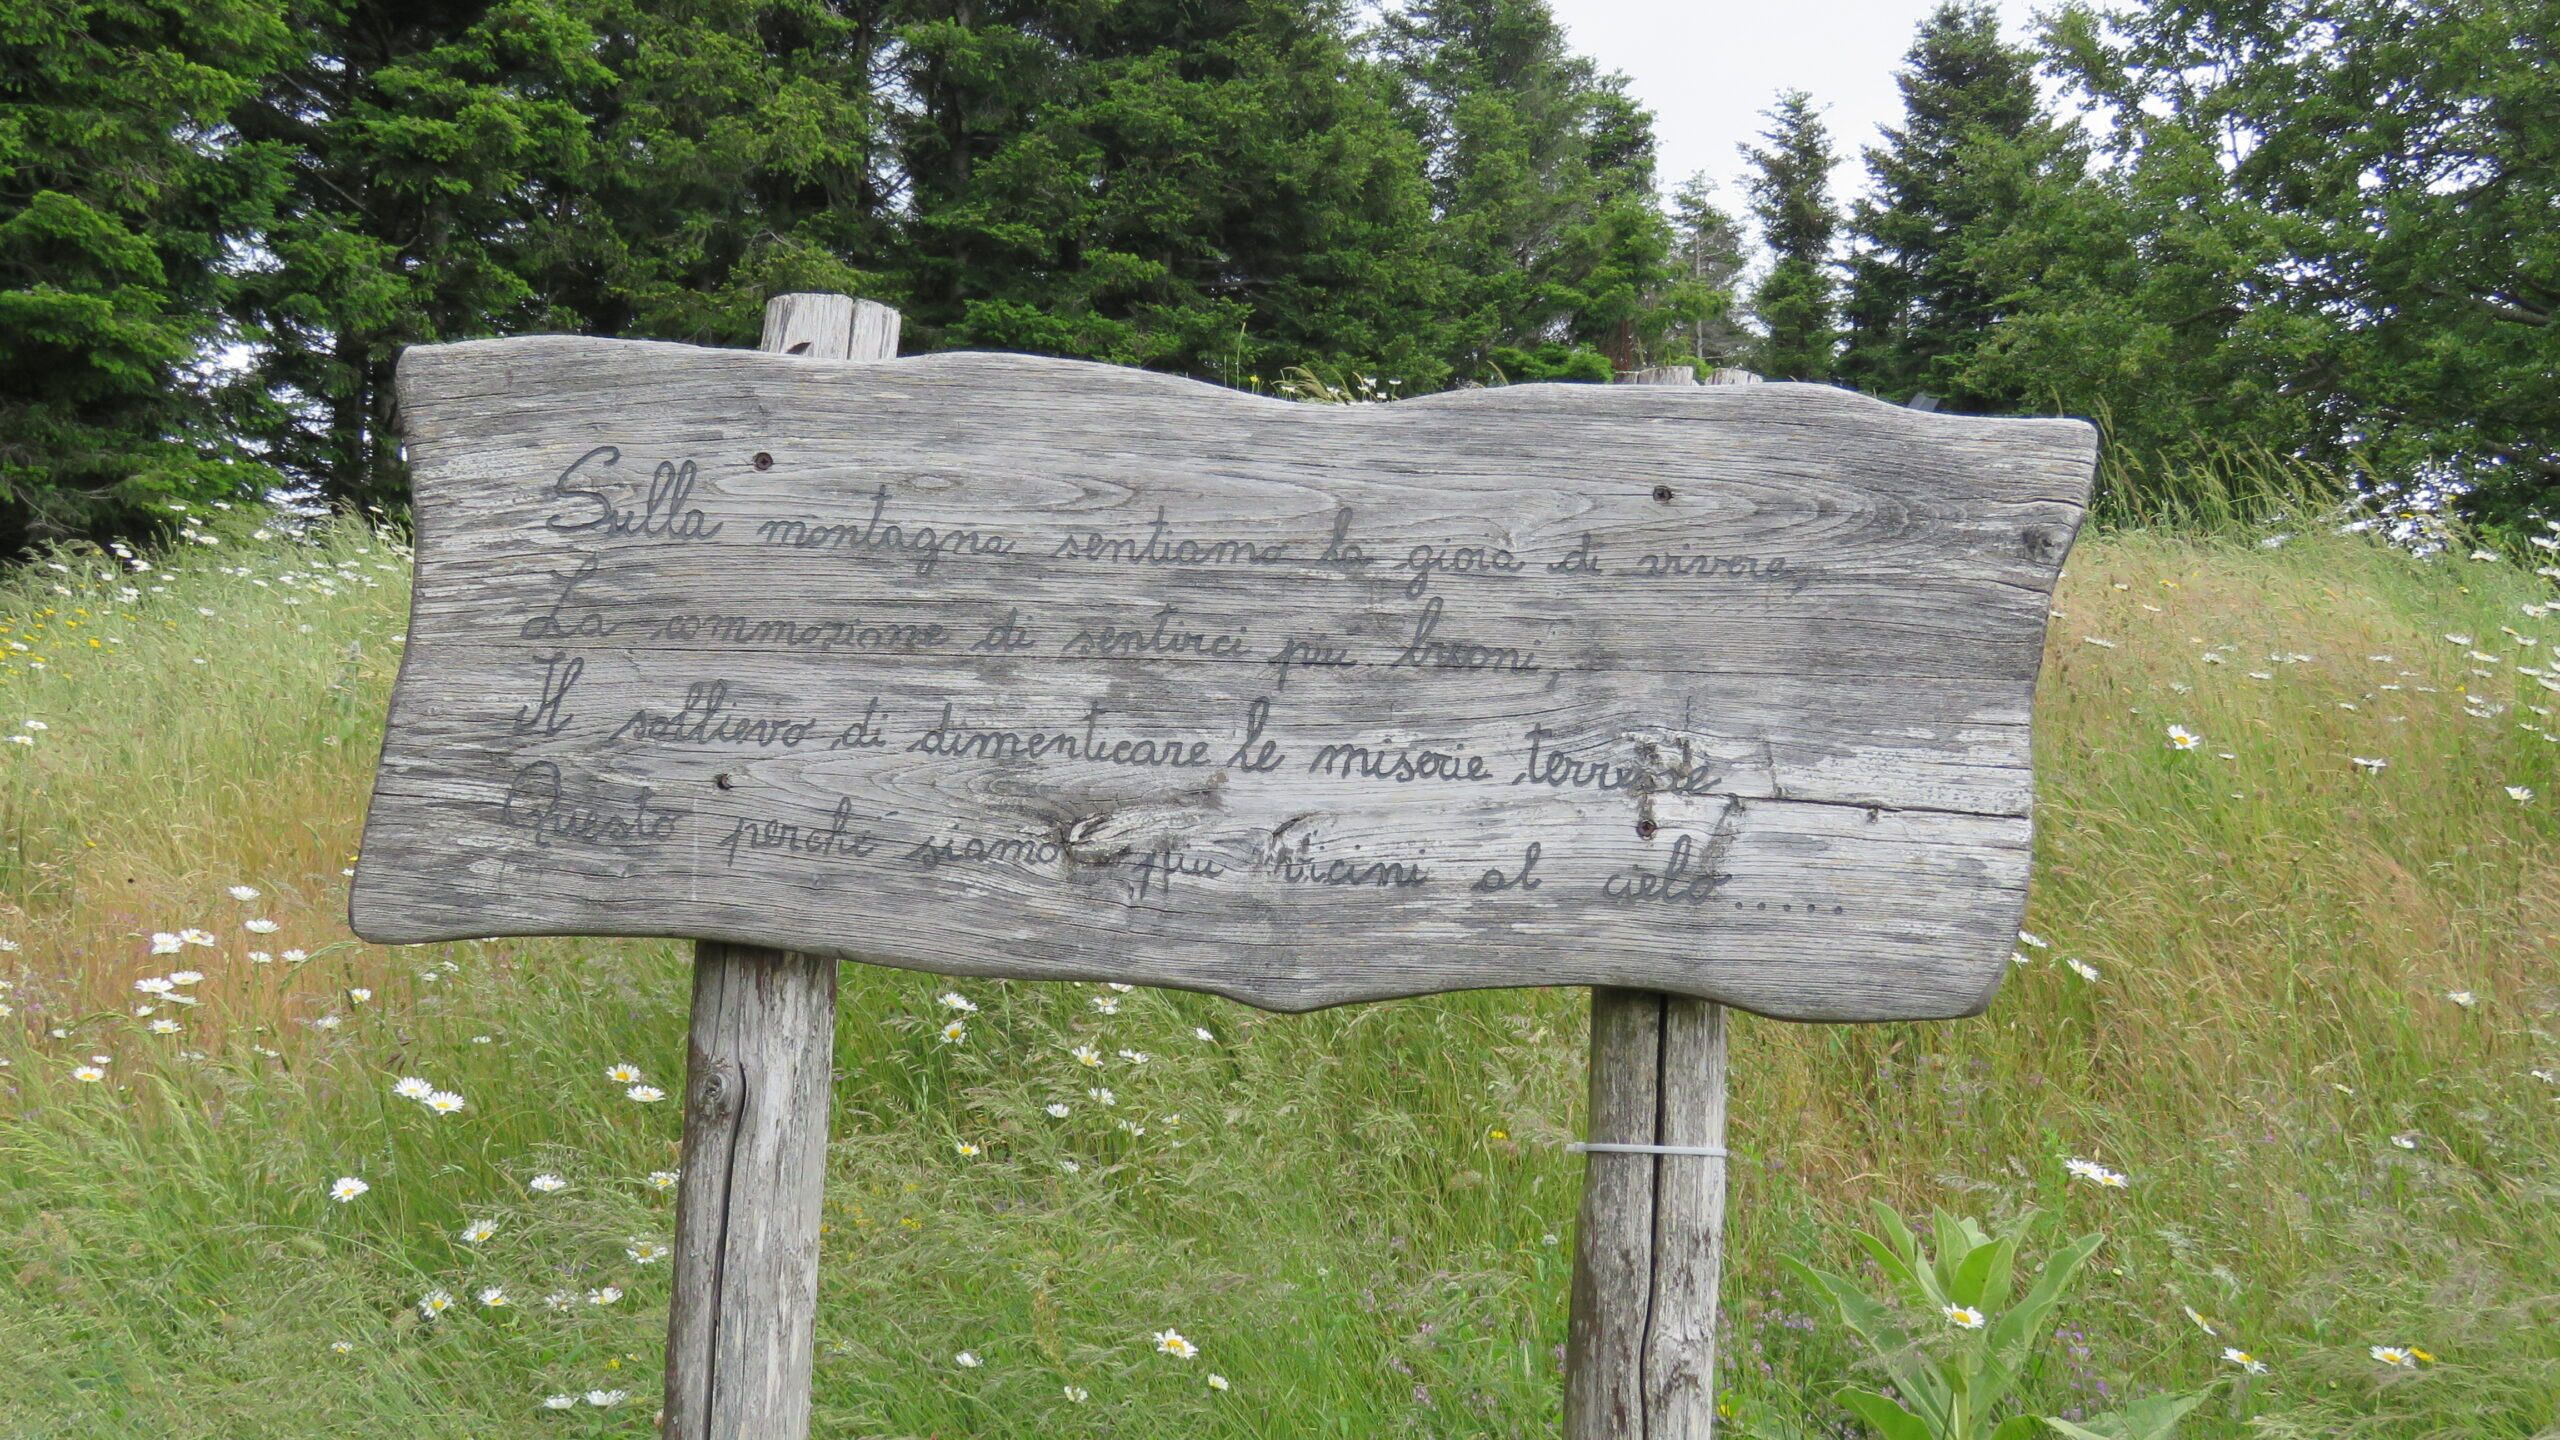 Sulla montagna sentiamo la gioia di vivere,
La commozione di sentirci più buoni,
Il sollievo di dimenticare le miserie terrene
Questo perché siamo più vicini al cielo.....